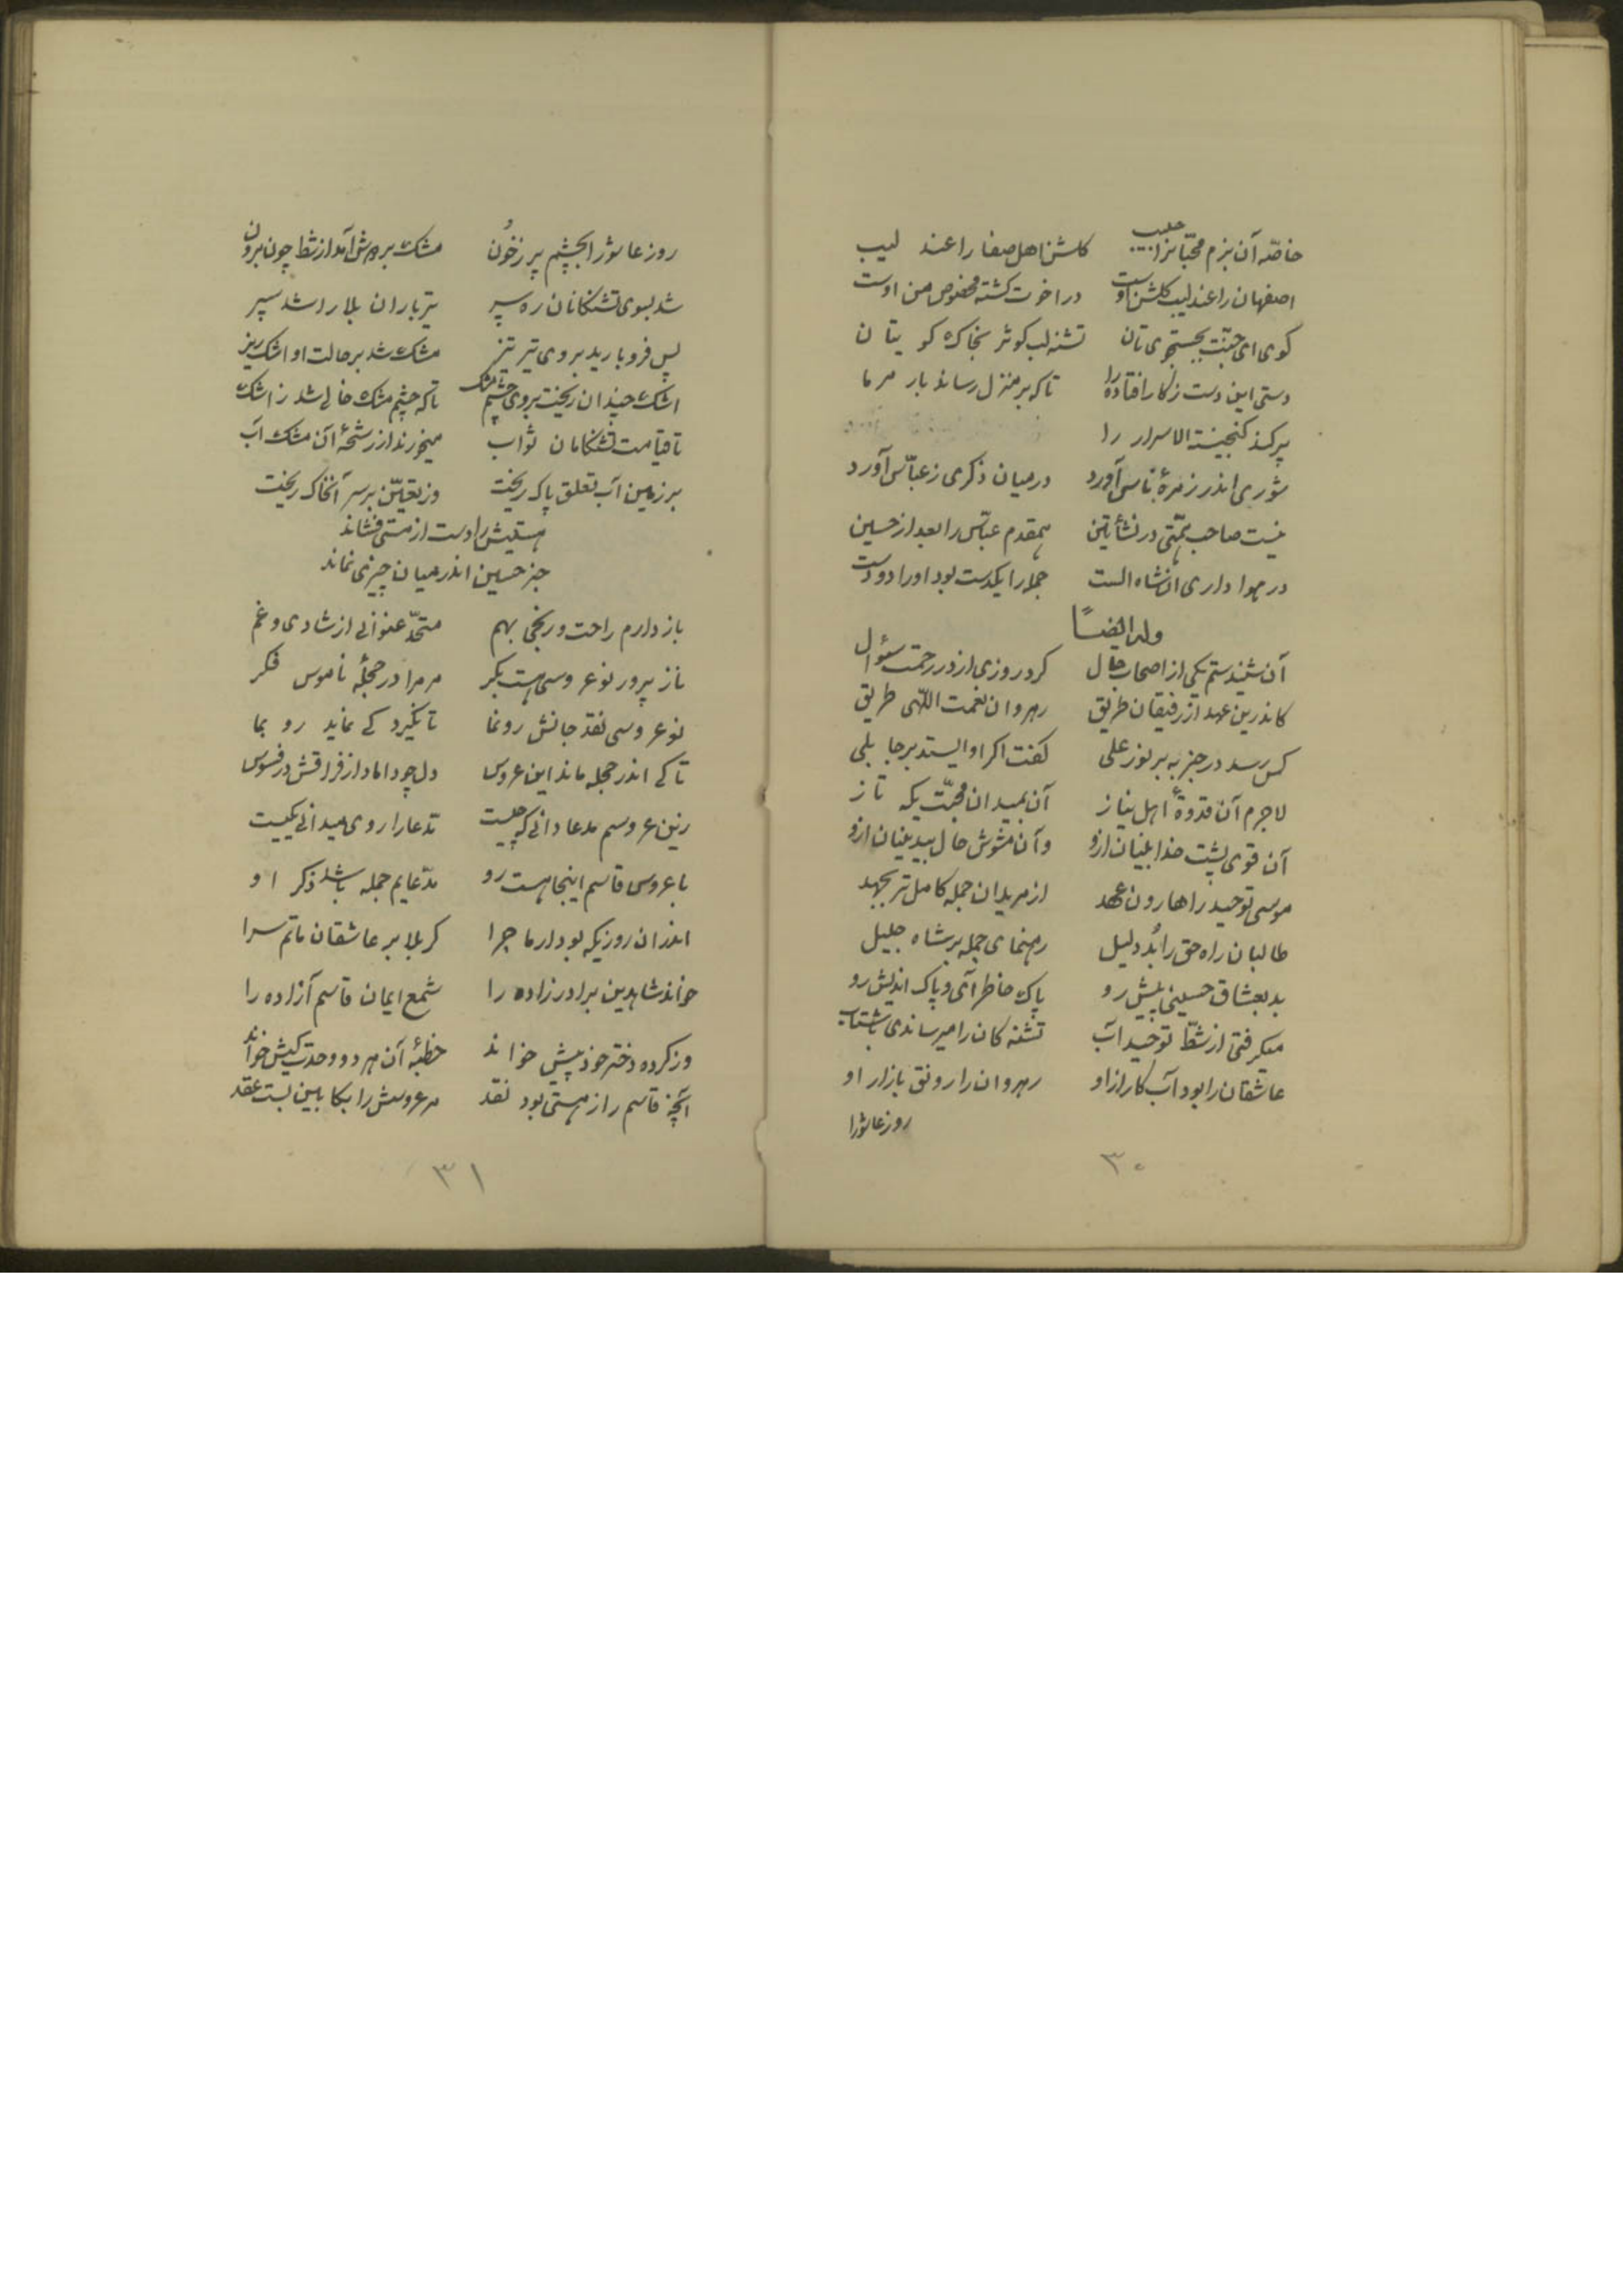 خاصّه آن بزم محبّانرا حبیب گلشن اهل صفا را عندلیب
اصفهان را عندلیب گلشن اوست در اخوت گشته مخصوص من اوست
کوی ای جنّت بجستجوی تان تشنه لب کوثر بخاک کویتان
دستی این دست ز کار افتاده را تا که بر منزل رساند بار مر ما
پر کند گنجینة الاسرار را
شوری اندر زمرهٔ ناس آورد در میان ذکری ز عبّاس آورد
نیست صاحب همّتی در نشأتین همقدم عبّاس را بعد از حسین
در هوا داری آن شاه الست جمله را یکدست بود او را دو دست
وله ایضاً
آن شنیدستم یکی از اصحاب حال کرد روزی از در رحمت سئوال
کاندرین عهد از رفیقان طریق رهروان نعمت اللّهی طریق
کس رسد در جذبه بر نور علی گفت اگر او ایستد بر جا بلی
لاجرم آن قدوهٔ اهل نیاز آن بمیدان محبّت یکه تاز
آن قوی پشت خدا بینان ازو وآن مشوش حال بیدینان ازو
موسی توحید را هارون عهد از مریدان جمله کامل تر بجهد
طالبان راه حق را بُد دلیل رهنمای جمله بر شاه جلیل
بد بعشاق حسینی پیش رو پاک خاطر آی و پاک اندیش رو
میگرفتی از شطّ توحید آب تشنه کان را میرساندی باشتاب
عاشقان را بود آب کار ازاو رهروان را رونق بازار او
روز عاشورا
۳۰
روز عاشورا بچشم پر ز خون مشک بر دوش آمد از شط چون برون
شد بسوی تشنکامان ره سپر تیر باران بلا را شد سپر
پس فرو بارید بر وی تیر تیز مشک شد بر حالت او اشک ریز
اشک چندان ریخت بر وی چشم مشک تا که چشم مشک خالی شد ز اشک
تا قیامت تشنکامان ثواب میخورند از رشحهٔ آن مشک آب
بر زمین آب تعلق پاک ریخت وز تعیّن بر سر آن خاک ریخت
هستیش را دست از مستی فشاند
جز حسین اندر میان چیزی نماند
باز دارم راحت و رنجی بهم متحّد عنوانی از شادی و غم
ناز پرور نو عروسی هست بکر مر مرا در حجلهٔ ناموس فکر
نو عروسی نقد جانش رونما تا نگیرد کی نماید رو بما
تا کی اندر حجله ماند این عروس دل چو داماد از فراقش در فسوس
زین عروسم مدعا دانی که چیست مدعا را روی میدانی بکیست
با عروس قاسم اینجا هست رو مدّعایم جمله باشد ذکر او
اندر ان روزیکه بود ار ماجرا کربلا بر عاشقان ماتم سرا
خواند شاه دین برادر زاده را شمع ایمان قاسم آزاده را
وز کرده دختر خود پیش خواند خطبهٔ آن هر دو وحدت کیش خواند
آنچه قاسم را ز هستی بود نقد مر عروسش را بکابین بست عقد
۳۱